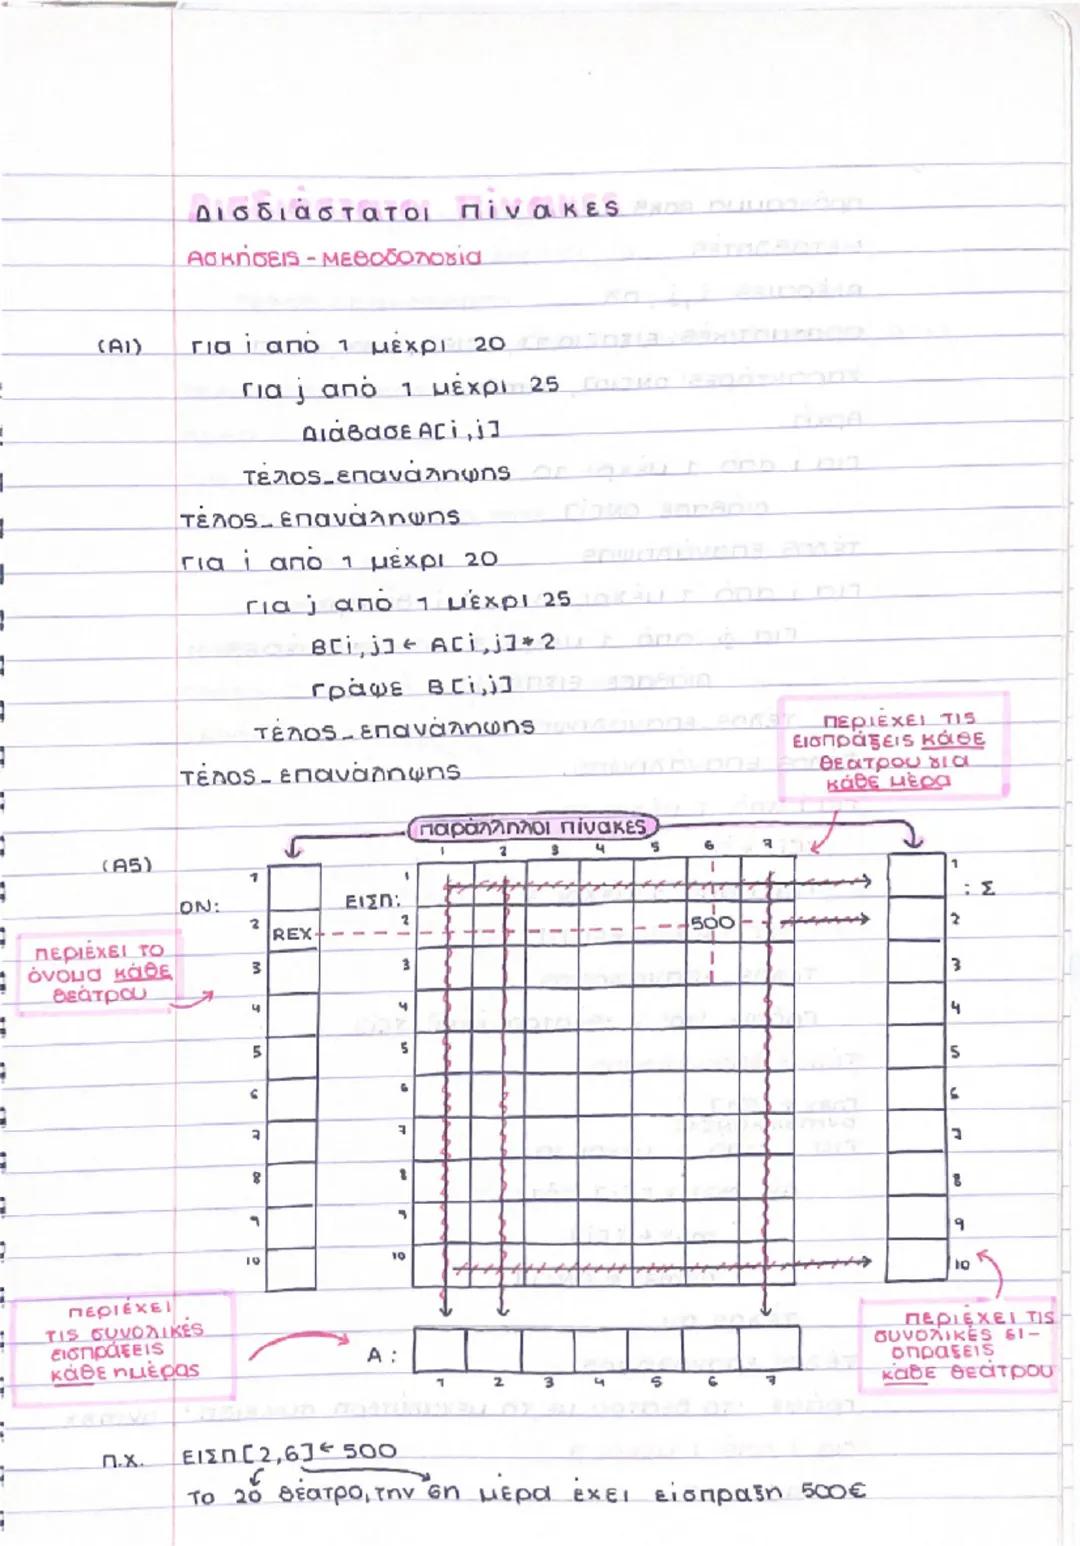 Δισδιάστατοι πίνακες
Ασκήσεις - Μεθοδολογία
(A1) Για i από 1 μέχρι 20
Για j από 1 μέχρι 25
Διάβασε A[i,j]
Τέλος_επανάληψης
Τέλος_επανάληψης
Για i από 1 μέχρι 20
Για j από 1 μέχρι 25
B[i,j] ← A[i,j]*2
Γράψε B[i,j]
Τέλος_επανάληψης
Τέλος_επανάληψης
περιέχει τις
εισπράξεις κάθε
θεάτρου για
κάθε μέρα
παράλληλοι πίνακες
(A5)
1 2 3 4 5 6 7
ΟΝ:
ΕΙΣΠ:
: Σ
1 1 1
2 REX 2 500 2
3 3 3
περιέχει το
όνομα κάθε
θεάτρου
4 4 4
5 5 5
6 6 6
7 7 7
8 8 8
9 9 9
10 10 10
περιέχει
τις συνολικές
εισπράξεις
κάθε ημέρας
Α:
1 2 3 4 5 6 7
περιέχει τις
συνολικές ει-
σπράξεις
κάθε θεάτρου
π.χ. ΕΙΣΠ[2,6] ← 500
Το 2ο θέατρο, την 6η μέρα έχει είσπραξη 500€